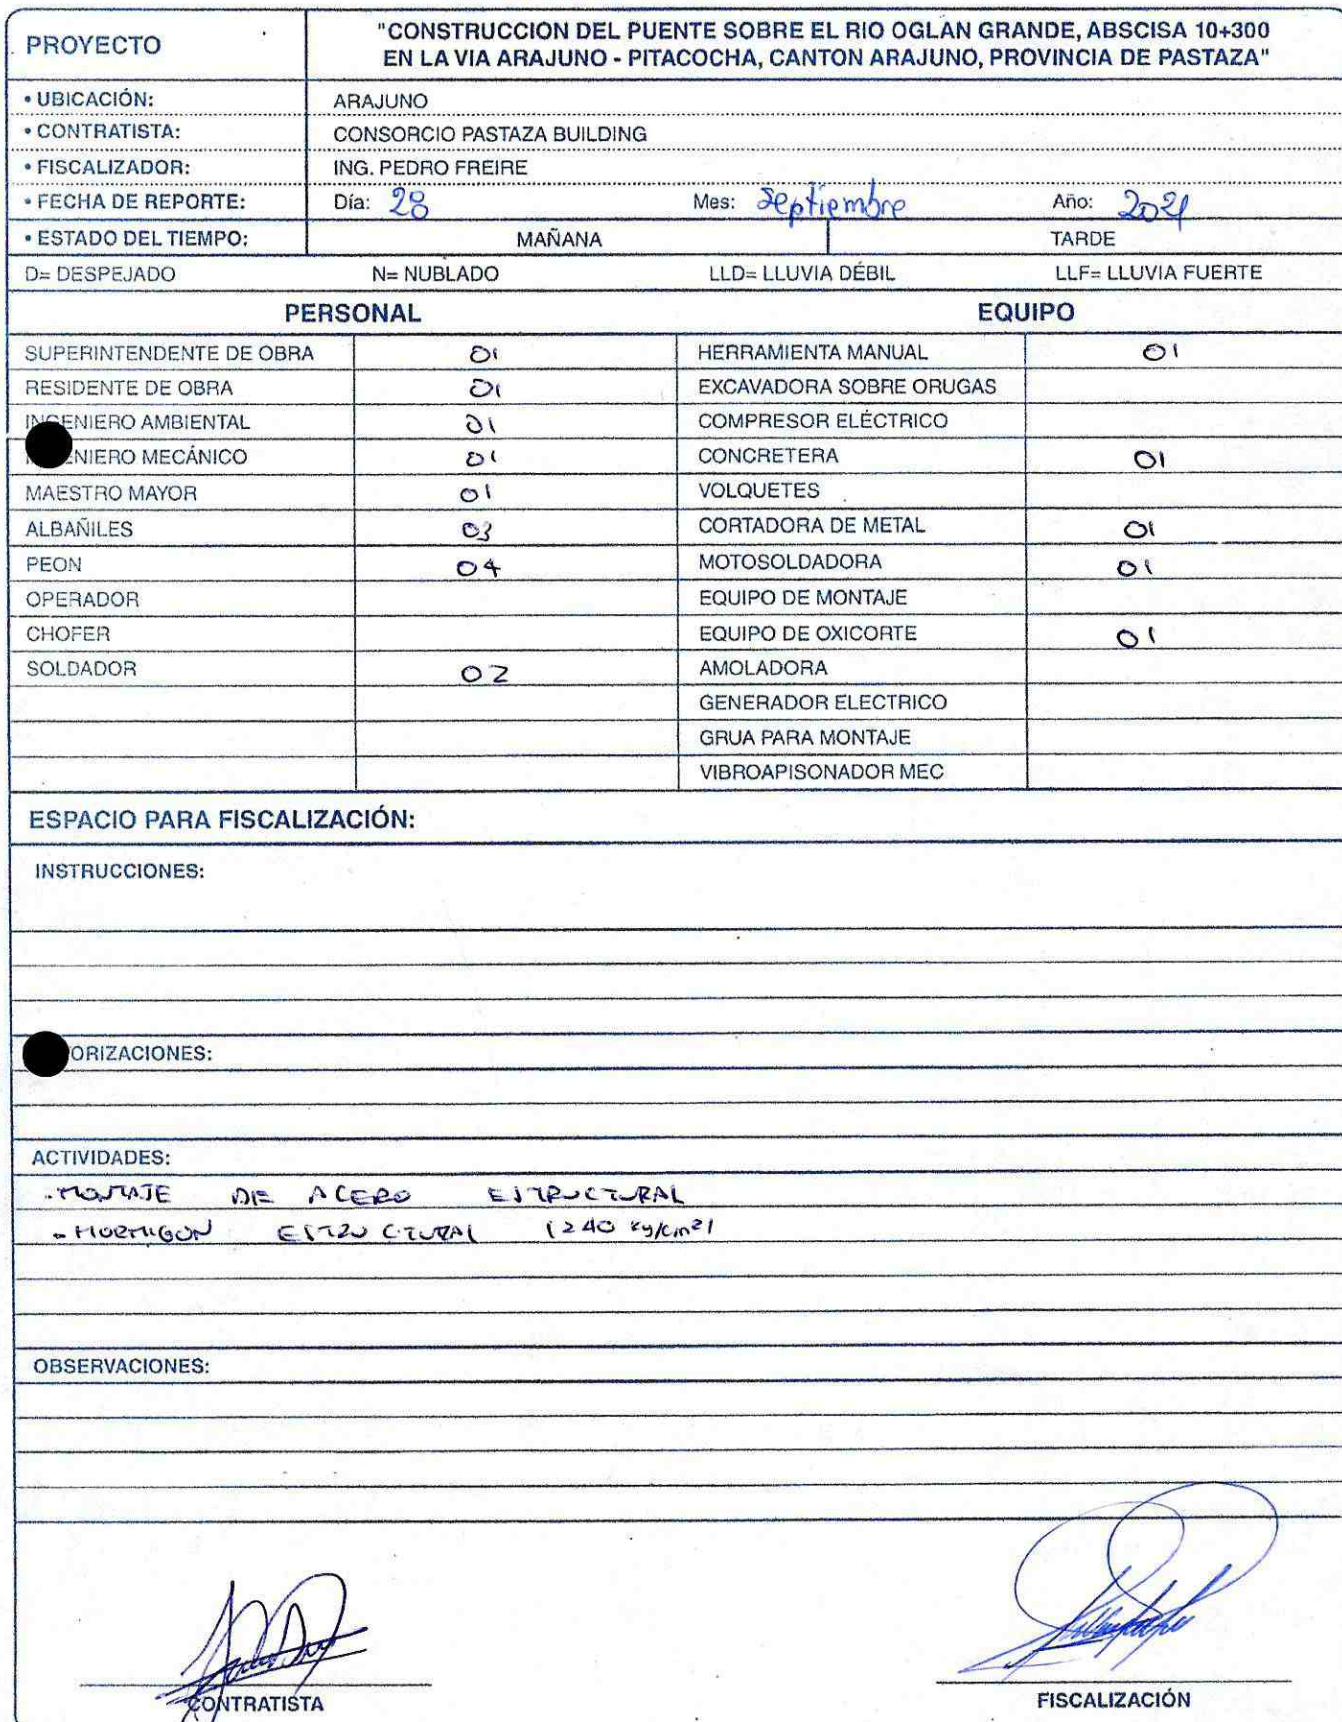 PROYECTO
"CONSTRUCCION DEL PUENTE SOBRE EL RIO OGLAN GRANDE, ABSCISA 10+300
EN LA VIA ARAJUNO - PITACOCHA, CANTON ARAJUNO, PROVINCIA DE PASTAZA"
• UBICACIÓN: ARAJUNO
• CONTRATISTA: CONSORCIO PASTAZA BUILDING
• FISCALIZADOR: ING. PEDRO FREIRE
• FECHA DE REPORTE: Día: 28 Mes: Septiembre Año: 2021
• ESTADO DEL TIEMPO: MAÑANA TARDE
D= DESPEJADO N= NUBLADO LLD= LLUVIA DÉBIL LLF= LLUVIA FUERTE
PERSONAL EQUIPO
SUPERINTENDENTE DE OBRA 01 HERRAMIENTA MANUAL 01
RESIDENTE DE OBRA 01 EXCAVADORA SOBRE ORUGAS
INGENIERO AMBIENTAL 01 COMPRESOR ELÉCTRICO
NIERO MECÁNICO 01 CONCRETERA 01
MAESTRO MAYOR 01 VOLQUETES
ALBAÑILES 03 CORTADORA DE METAL 01
PEON 04 MOTOSOLDADORA 01
OPERADOR EQUIPO DE MONTAJE
CHOFER EQUIPO DE OXICORTE 01
SOLDADOR 02 AMOLADORA
GENERADOR ELECTRICO
GRUA PARA MONTAJE
VIBROAPISONADOR MEC
ESPACIO PARA FISCALIZACIÓN:
INSTRUCCIONES:
ORIZACIONES:
ACTIVIDADES:
- MONTAJE DE ACERO ESTRUCTURAL
- HORMIGON ESTRUCTURAL (240 kg/cm2)
OBSERVACIONES:
CONTRATISTA
FISCALIZACIÓN